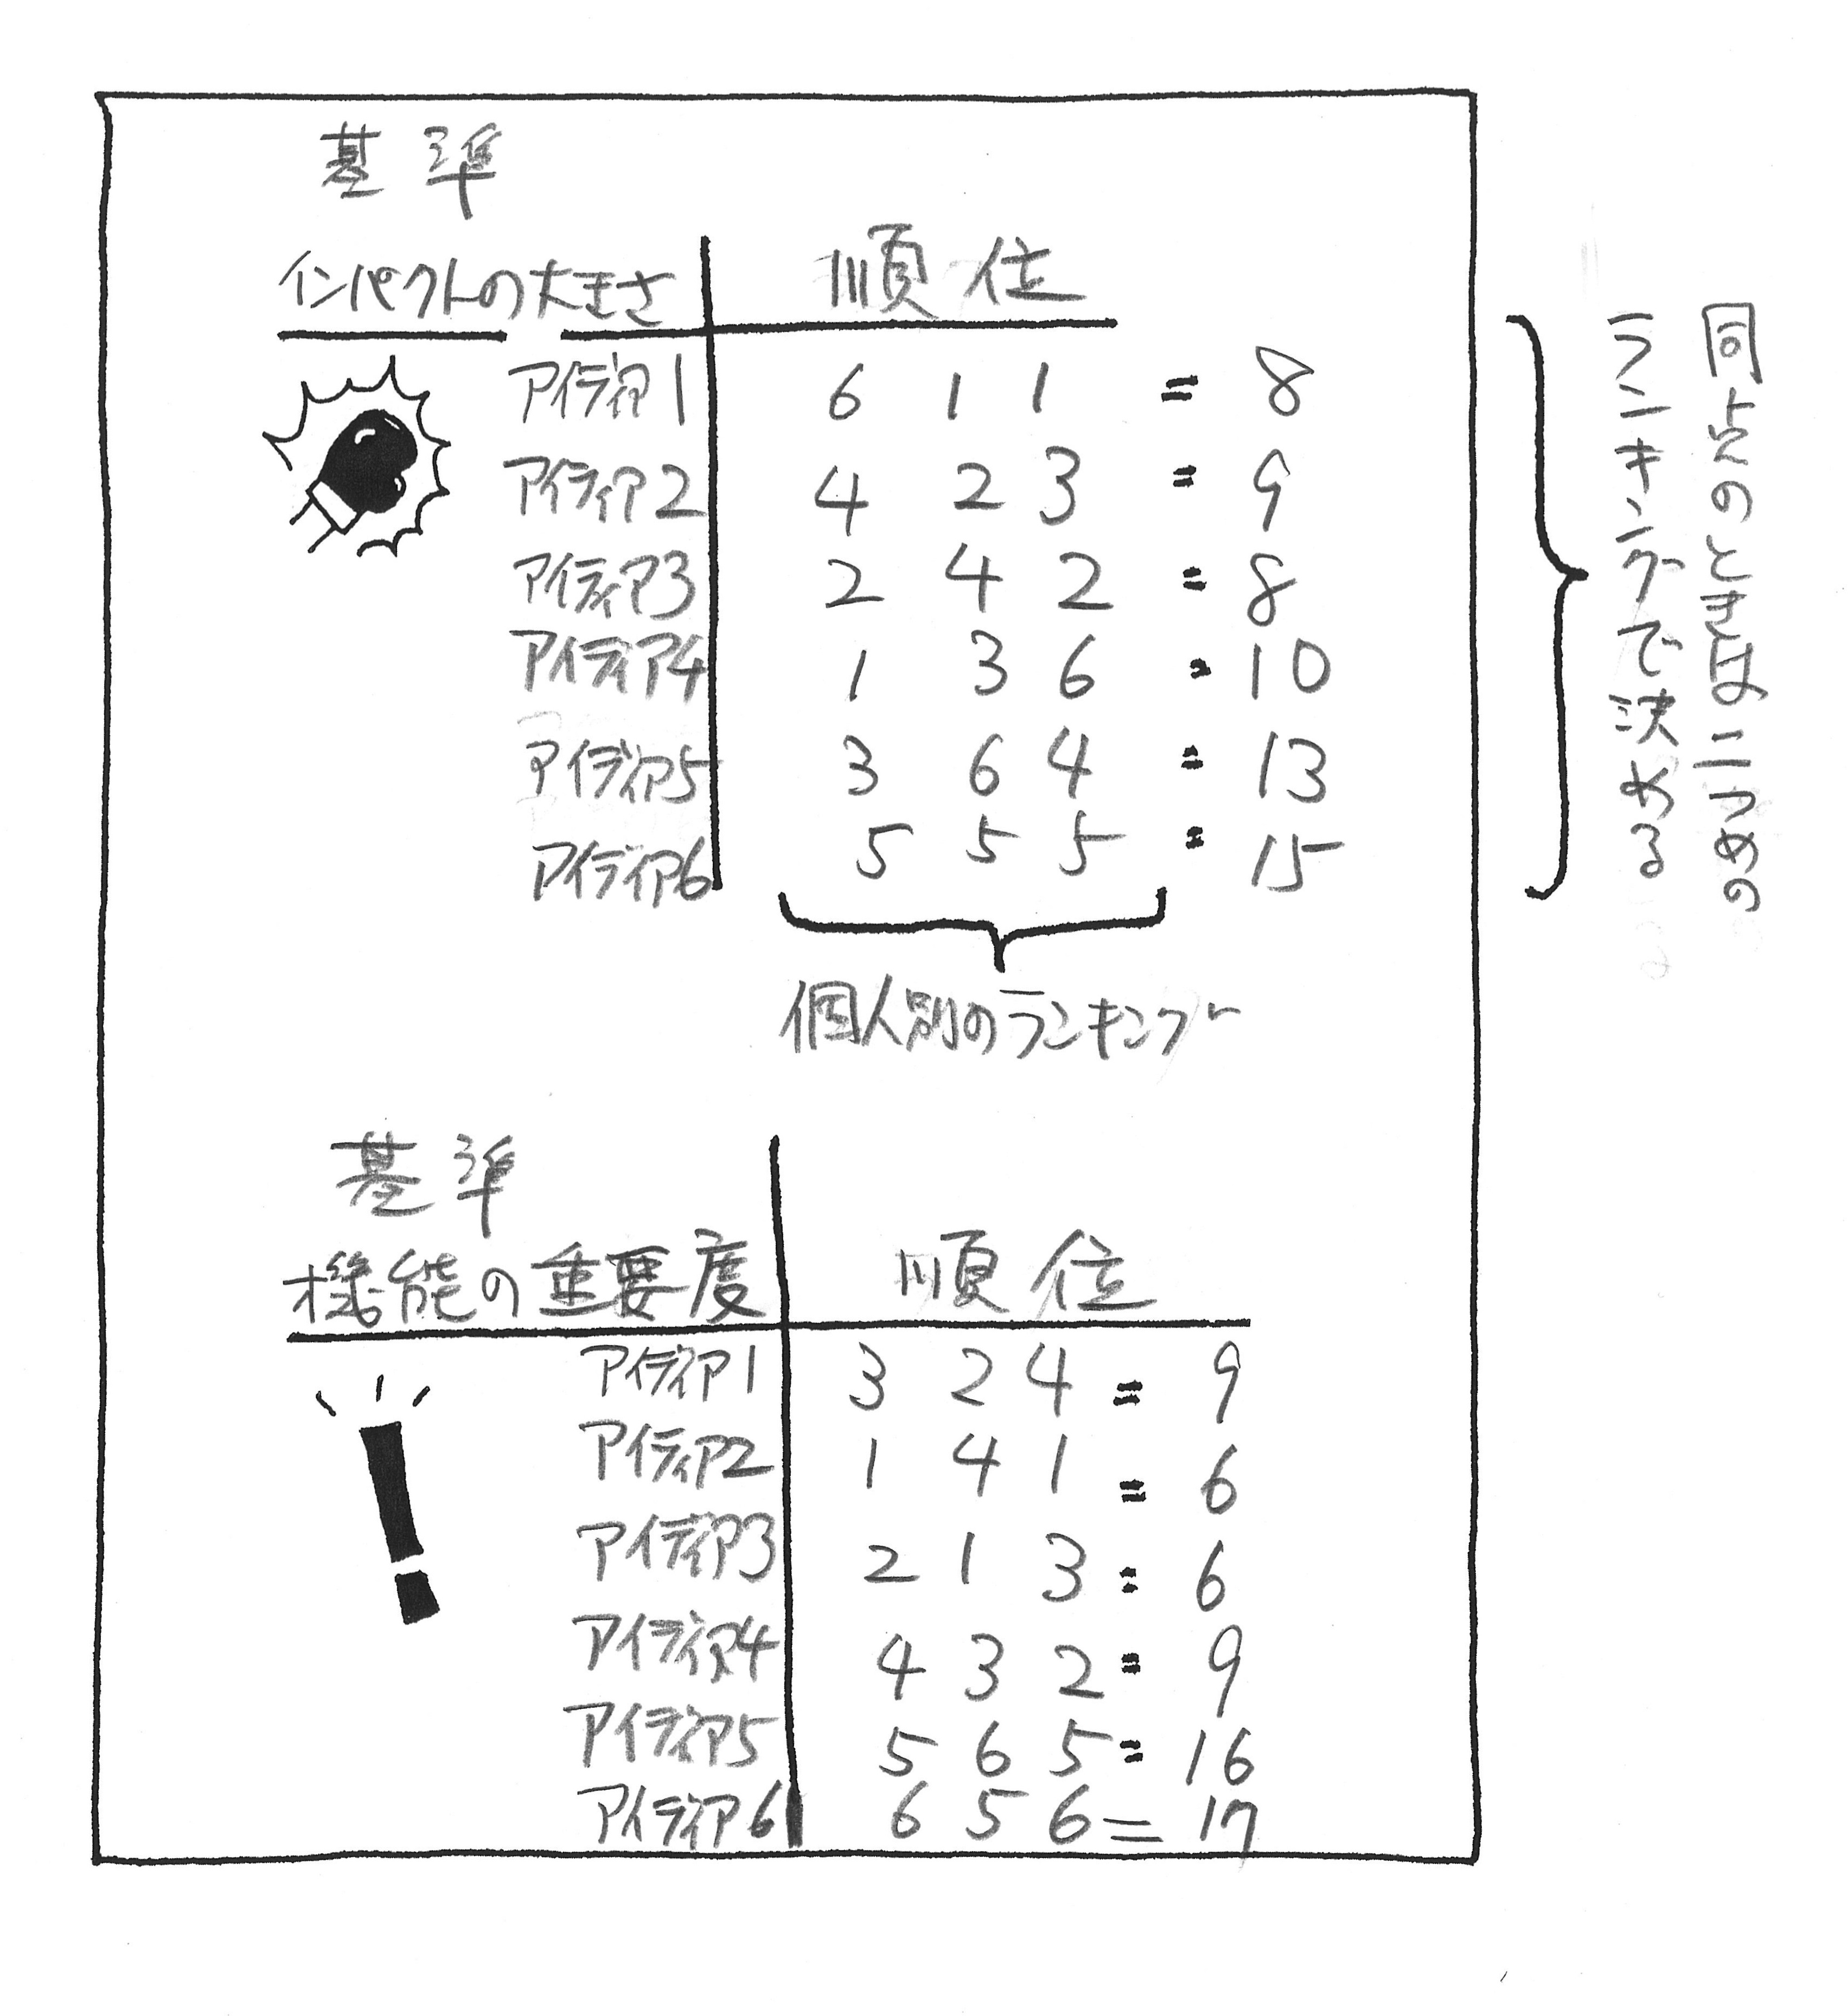 基準
インパクトの大きさ 順位
アイディア1 6 1 1 = 8
アイディア2 4 2 3 = 9
アイディア3 2 4 2 = 8
アイディア4 1 3 6 = 10
アイディア5 3 6 4 = 13
アイディア6 5 5 5 = 15
個人別のランキング
同点のときは二つめの
ランキングで決める
基準
機能の重要度 順位
アイディア1 3 2 4 = 9
アイディア2 1 4 1 = 6
アイディア3 2 1 3 = 6
アイディア4 4 3 2 = 9
アイディア5 5 6 5 = 16
アイディア6 6 5 6 = 17